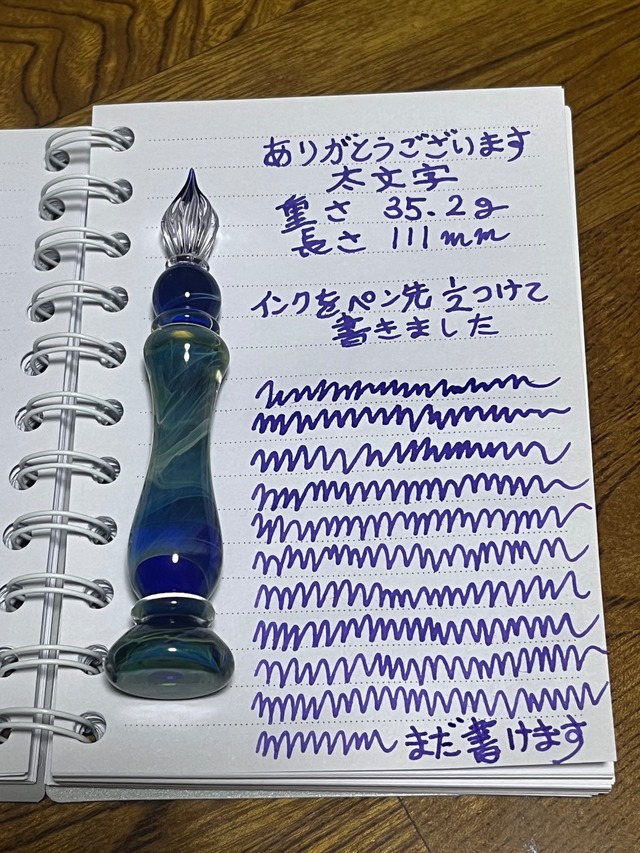 ありがとうございます
太文字
重さ 35.2g
長さ 111mm
インクをペン先1/2つけて
書きました
まだ書けます